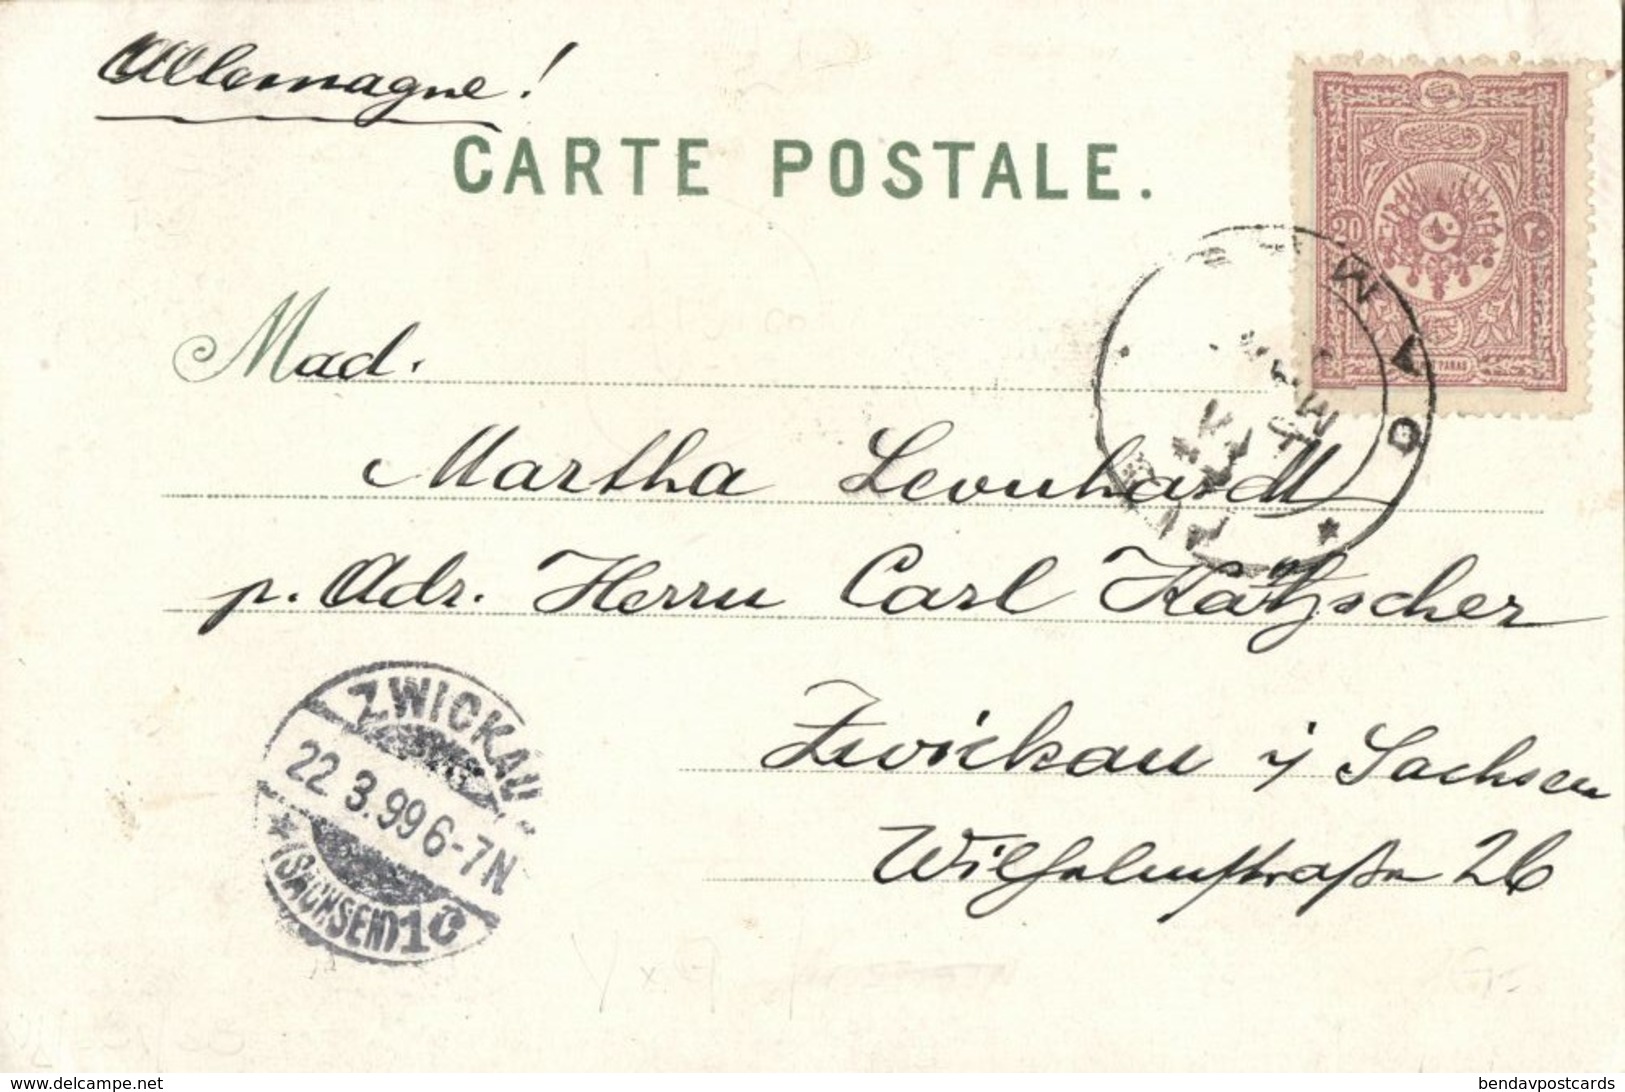 Allemagne!
CARTE POSTALE.
20
PARAS
Mad.
Martha Leonhardt
p. Adr. Herrn Carl Katzscher
Zwickau i/ Sachsen
Wilhelmstraße 26
ZWICKAU
22.3.99 6-7N
* (SACHSEN) 1 c
www.delcampe.net
bendavpostcards